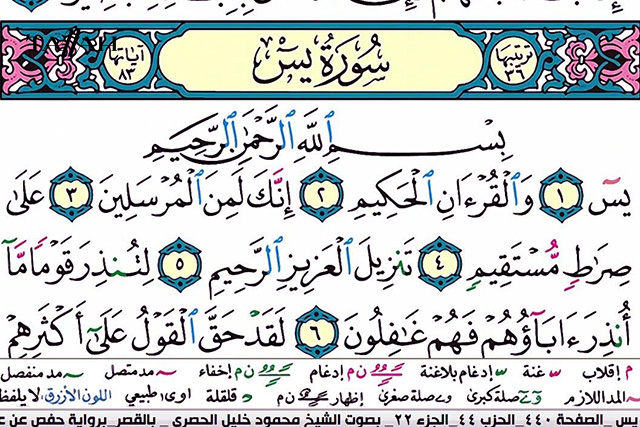 ترتيبها ٣٦ سُورَةُ يسٓ آياتها ٨٣
بِسْمِ ٱللَّهِ ٱلرَّحْمَٰنِ ٱلرَّحِيمِ
يسٓ ١ وَٱلْقُرْءَانِ ٱلْحَكِيمِ ٢ إِنَّكَ لَمِنَ ٱلْمُرْسَلِينَ ٣ عَلَىٰ
صِرَٰطٍ مُّسْتَقِيمٍ ٤ تَنزِيلَ ٱلْعَزِيزِ ٱلرَّحِيمِ ٥ لِتُنذِرَ قَوْمًا مَّآ
أُنذِرَ ءَابَآؤُهُمْ فَهُمْ غَٰفِلُونَ ٦ لَقَدْ حَقَّ ٱلْقَوْلُ عَلَىٰٓ أَكْثَرِهِمْ
م إقلاب غنة إدغام بلاغنة ن م إدغام ن م إخفاء مد متصل مد منفصل
المد اللازم صلة كبرى وصلة صغرى إظهار ن م قلقلة اوى طبيعي اللون الأزرق لا يلفظ
يس_الصفحة ٤٤٠_الحزب ٤٤_الجزء ٢٢_ بصوت الشيخ محمود خليل الحصري _ بالقصر_برواية حفص عن